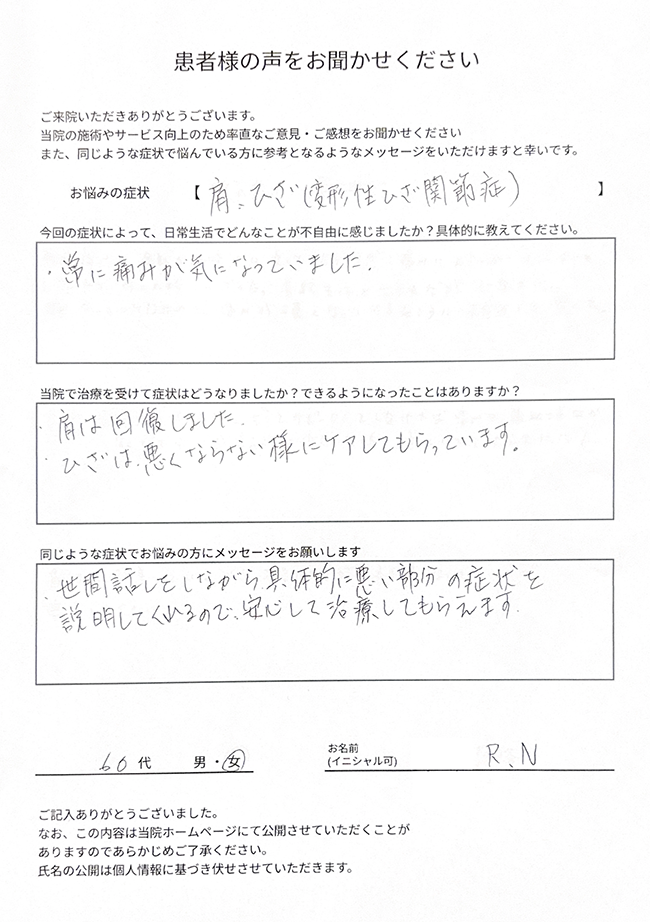 患者様の声をお聞かせください
ご来院いただきありがとうございます。
当院の施術やサービス向上のため率直なご意見・ご感想をお聞かせください
また、同じような症状で悩んでいる方に参考となるようなメッセージをいただけますと幸いです。
お悩みの症状 【肩、ひざ(変形性ひざ関節症) 】
今回の症状によって、日常生活でどんなことが不自由に感じましたか？具体的に教えてください。
・常に痛みが気になっていました.
当院で治療を受けて症状はどうなりましたか？できるようになったことはありますか？
・肩は回復しました.
・ひざは、悪くならない様にケアしてもらっています。
同じような症状でお悩みの方にメッセージをお願いします
・世間話しをしながら、具体的に悪い部分の症状を
説明してくれるので、安心して治療してもらえます.
60代 男・女
お名前
(イニシャル可) R.N
ご記入ありがとうございました。
なお、この内容は当院ホームページにて公開させていただくことが
ありますのであらかじめご了承ください。
氏名の公開は個人情報に基づき伏せさせていただきます。